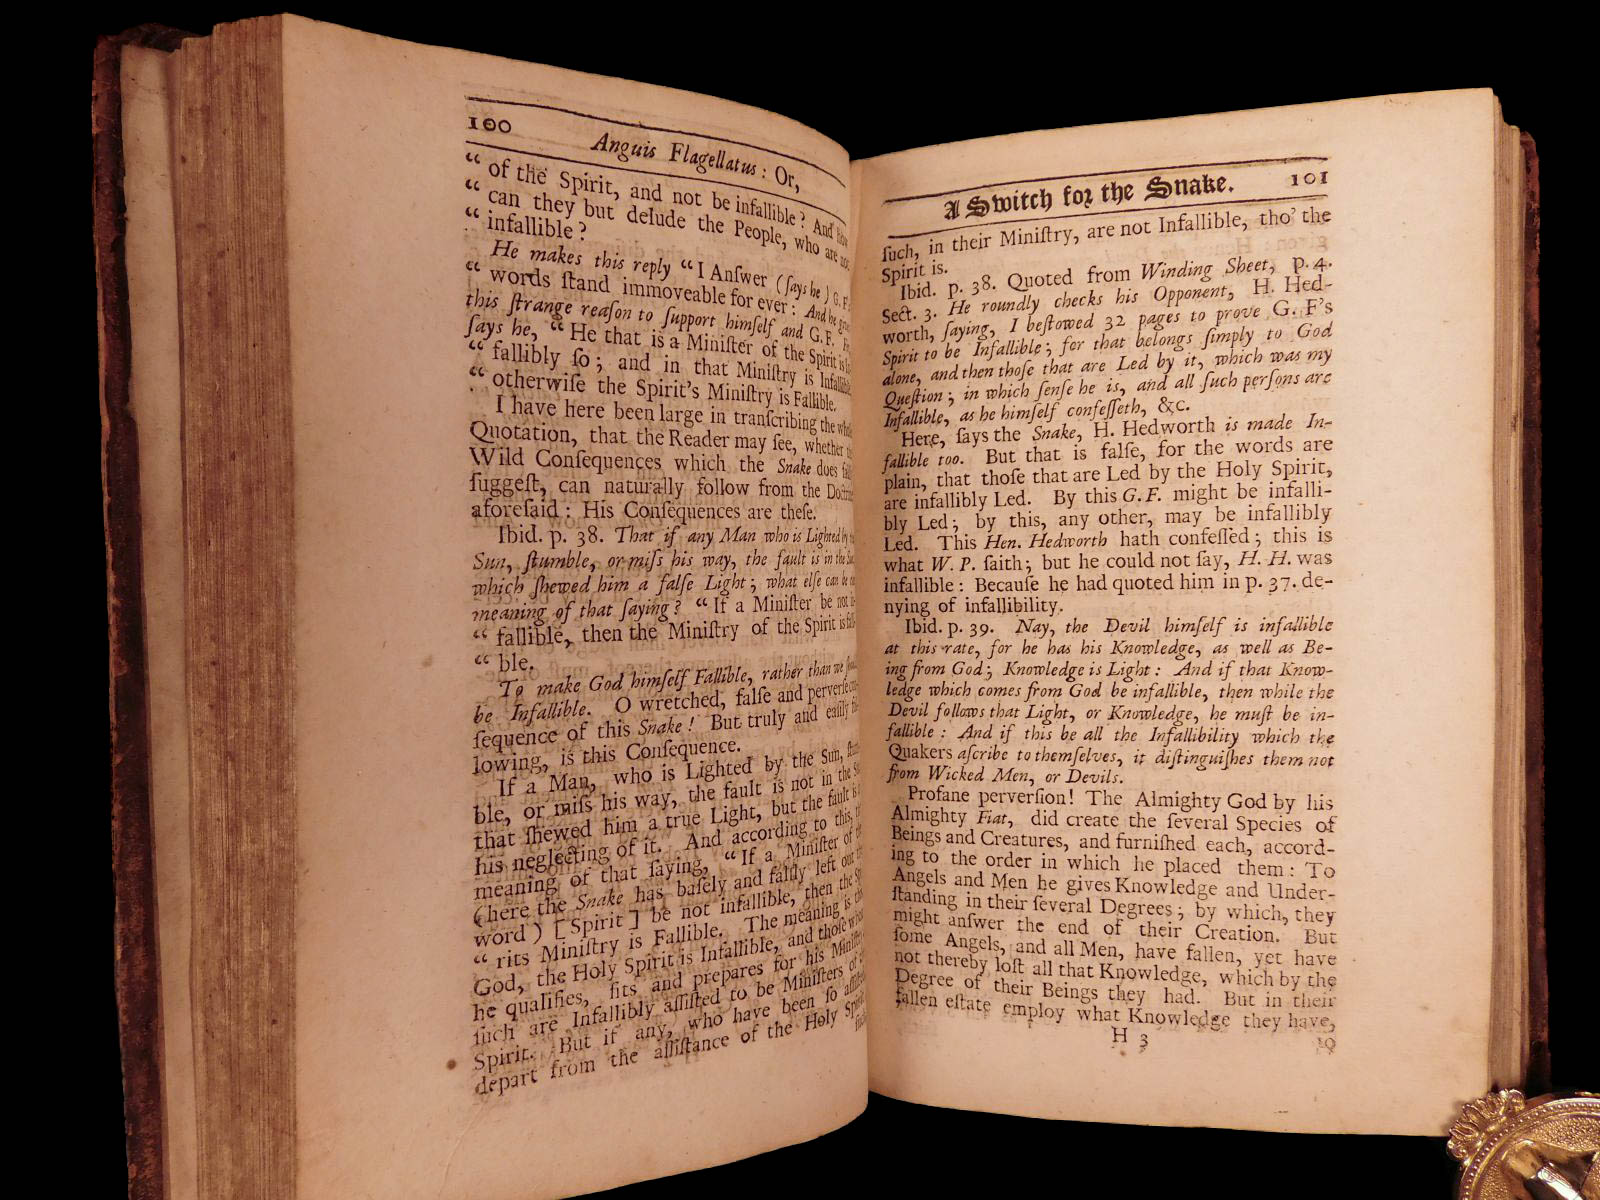 100
Anguis Flagellatus: Or,
“ of the Spirit, and not be infallible? And how
“ can they but delude the People, who are not
“ infallible?
He makes this reply “ I Anſwer (ſays he) G. F's
“ words ſtand immoveable for ever: And he gives
this ſtrange reaſon to ſupport himſelf and G. F.
ſays he, “ He that is a Miniſter of the Spirit is
“ fallibly ſo; and in that Miniſtry is Infallible,
“ otherwiſe the Spirit's Miniſtry is Fallible.
I have here been large in tranſcribing the whole
Quotation, that the Reader may ſee, whether the
Wild Conſequences which the Snake does
ſuggeſt, can naturally follow from the Doctrine
aforeſaid: His Conſequences are theſe.
Ibid. p. 38. That if any Man who is Lighted by the
Sun, ſtumble, or miſs his way, the fault is in the Sun,
which ſhewed him a falſe Light; what elſe can be the
meaning of that ſaying? “ If a Miniſter be not in-
“ fallible, then the Miniſtry of the Spirit is falli-
“ ble.
To make God himſelf Fallible, rather than we
be Infallible. O wretched, falſe and perverſe con-
ſequence of this Snake! But truly and eaſily fol-
lowing, is this Conſequence.
If a Man, who is Lighted by the Sun, ſtum-
ble, or miſs his way, the fault is not in the Sun
that ſhewed him a true Light, but the fault is in
his neglecting of it. And according to this, the
meaning of that ſaying, “ If a Miniſter of the
(here the Snake has baſely and falſly left out the
word) [Spirit] be not infallible, then the Spi-
“ rits Miniſtry is Fallible. The meaning is this,
God, the Holy Spirit is Infallible, and thoſe whom
he qualifies, fits and prepares for his Miniſtry,
ſuch are Infallibly aſſiſted to be Miniſters of the
Spirit. But if any, who have been ſo aſſiſted
depart from the aſſiſtance of the Holy Spirit,
ſuch
A Switch for the Snake. 101
ſuch, in their Miniſtry, are not Infallible, tho' the
Spirit is.
Ibid. p. 38. Quoted from Winding Sheet, p. 4.
Sect. 3. He roundly checks his Opponent, H. Hed-
worth, ſaying, I beſtowed 32 pages to prove G. F's
Spirit to be Infallible; for that belongs ſimply to God
alone, and then thoſe that are Led by it, which was my
Queſtion; in which ſenſe he is, and all ſuch perſons are
Infallible, as he himſelf confeſſeth, &c.
Here, ſays the Snake, H. Hedworth is made In-
fallible too. But that is falſe, for the words are
plain, that thoſe that are Led by the Holy Spirit,
are infallibly Led. By this G. F. might be infalli-
bly Led; by this, any other, may be infallibly
Led. This Hen. Hedworth hath confeſſed; this is
what W. P. ſaith; but he could not ſay, H. H. was
infallible: Becauſe he had quoted him in p. 37. de-
nying of infallibility.
Ibid. p. 39. Nay, the Devil himſelf is infallible
at this rate, for he has his Knowledge, as well as Be-
ing from God; Knowledge is Light: And if that Know-
ledge which comes from God be infallible, then while the
Devil follows that Light, or Knowledge, he muſt be in-
fallible: And if this be all the Infallibility which the
Quakers aſcribe to themſelves, it diſtinguiſhes them not
from Wicked Men, or Devils.
Profane perverſion! The Almighty God by his
Almighty Fiat, did create the ſeveral Species of
Beings and Creatures, and furniſhed each, accord-
ing to the order in which he placed them: To
Angels and Men he gives Knowledge and Under-
ſtanding in their ſeveral Degrees; by which, they
might anſwer the end of their Creation. But
ſome Angels, and all Men, have fallen, yet have
not thereby loſt all that Knowledge, which by the
Degree of their Beings they had. But in their
fallen eſtate employ what Knowledge they have,
H 3 to